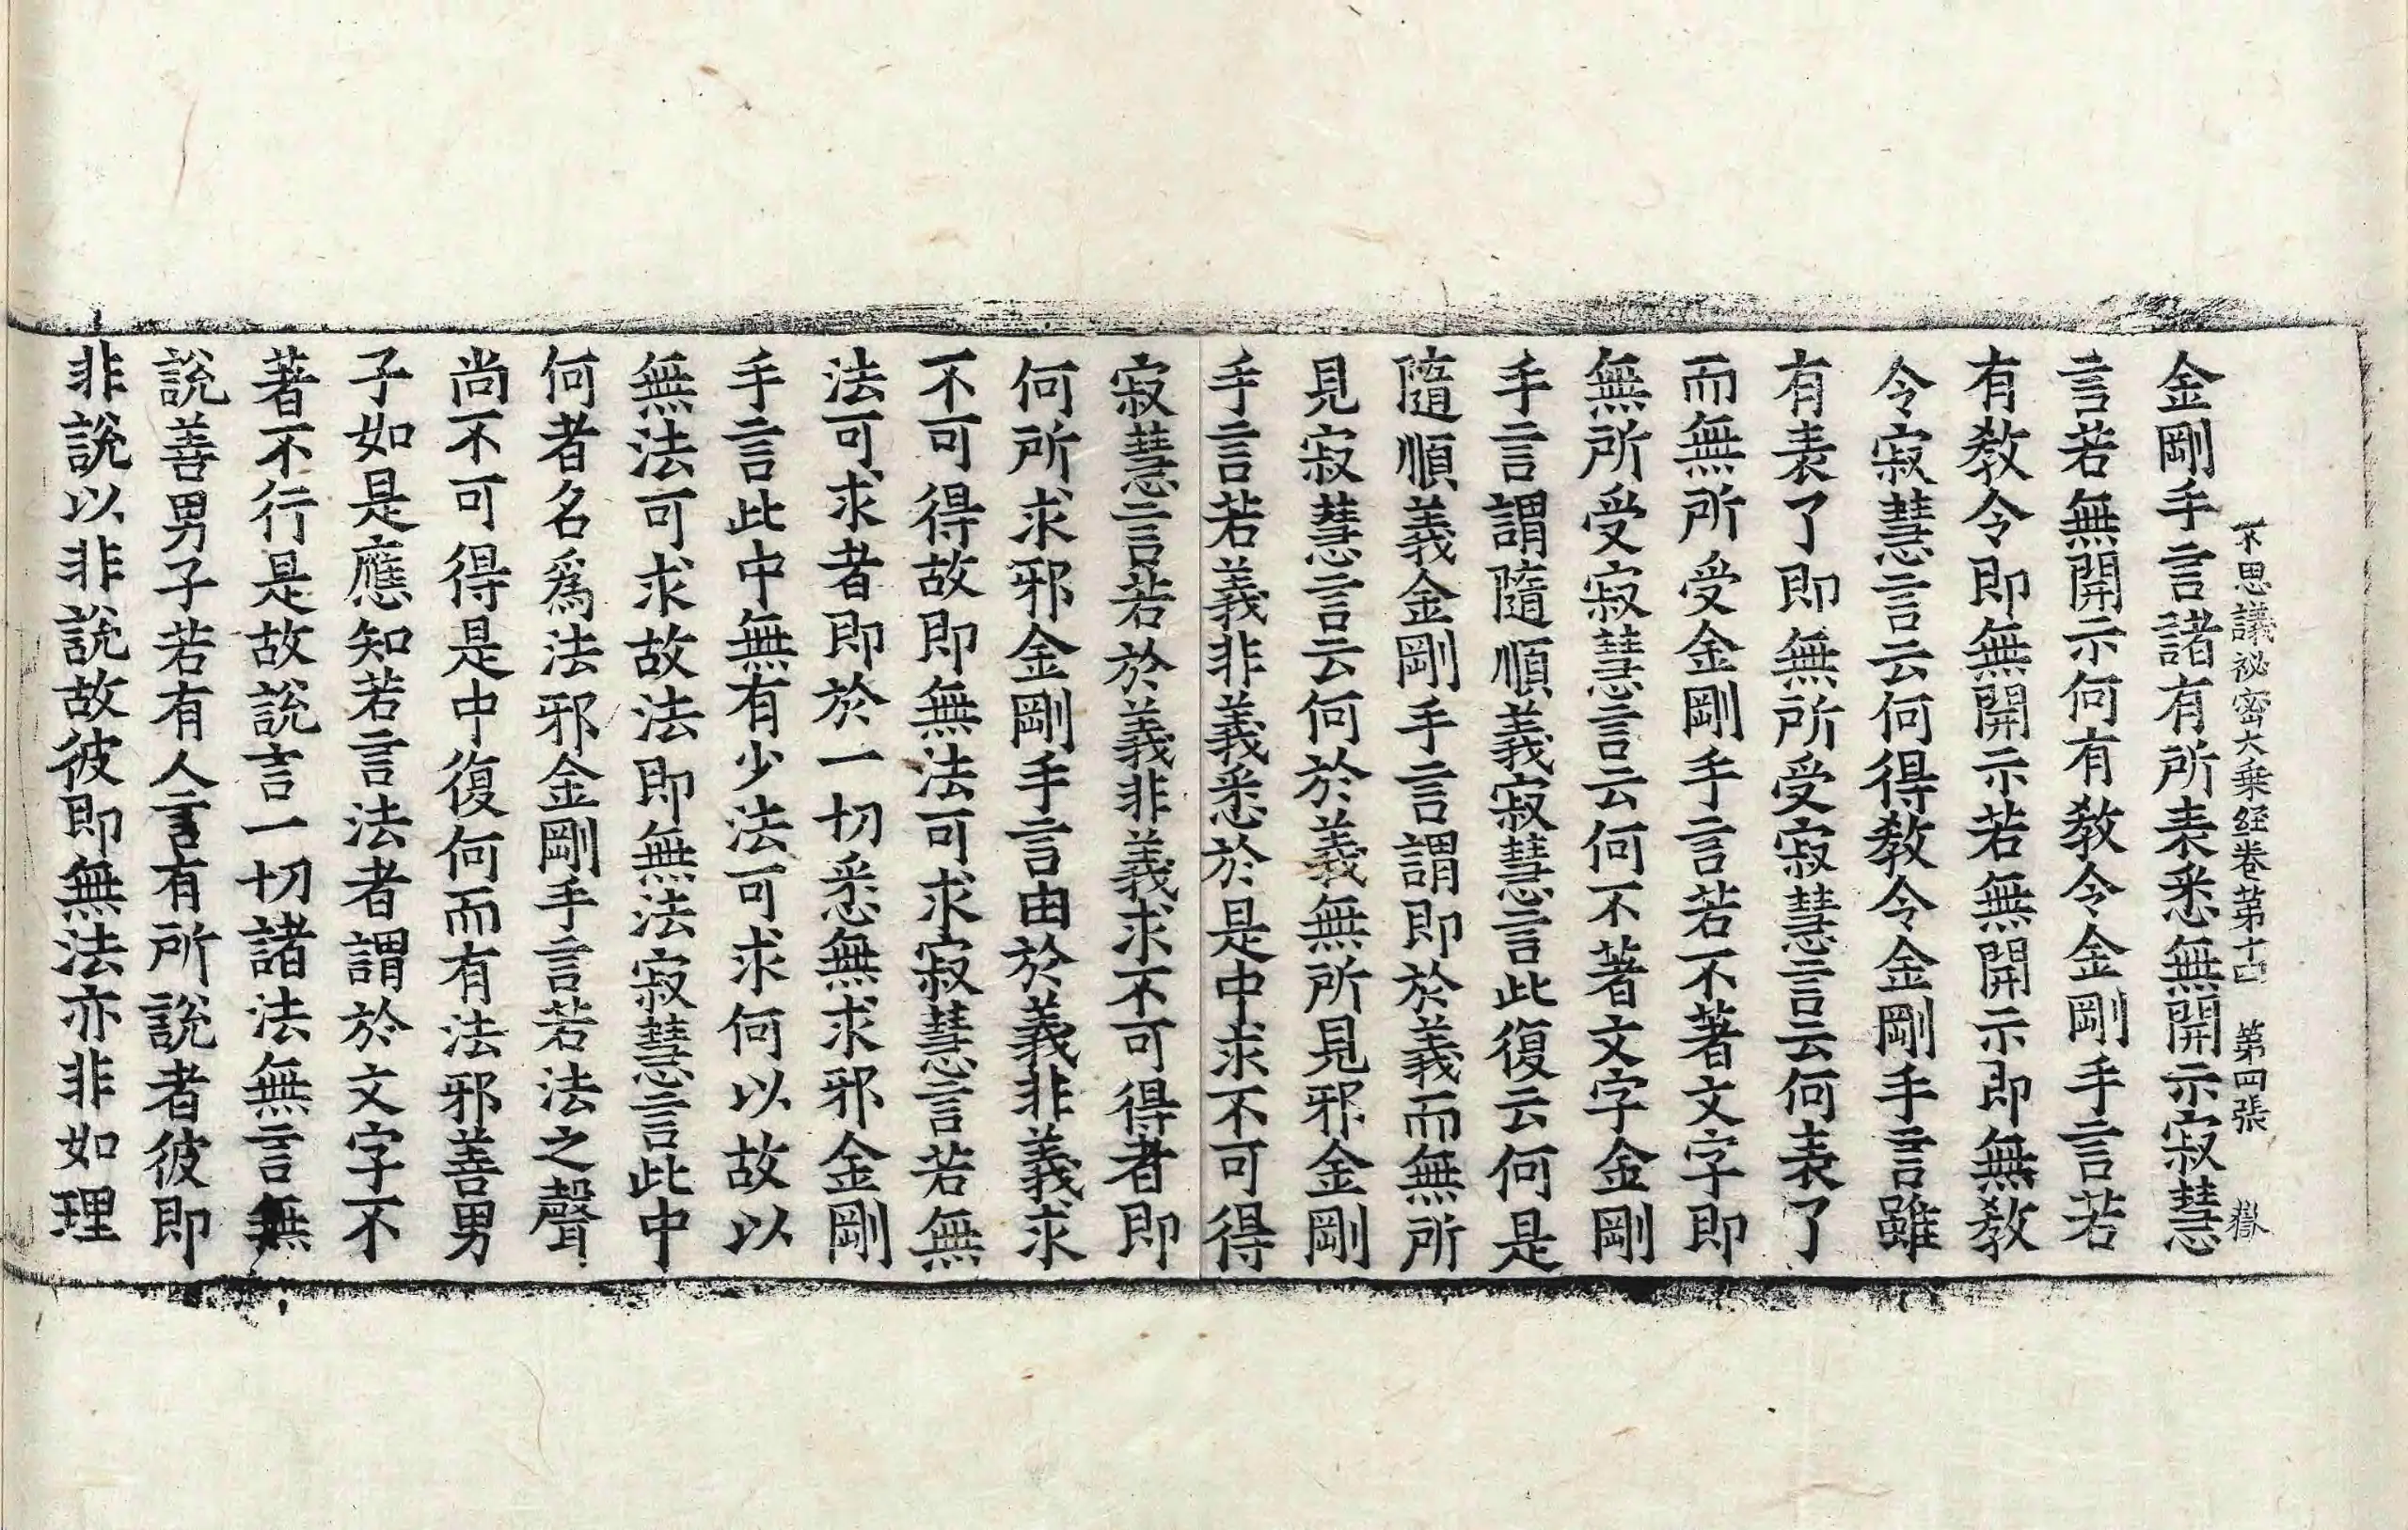 不思議祕密大乗経卷苐十四　苐四張　嶽
金剛手言諸有所表悉無開示寂慧
言若無開示何有教令金剛手言若
有教令即無開示若無開示即無教
令寂慧言云何得教令金剛手言雖
有表了即無所受寂慧言云何表了
而無所受金剛手言若不著文字即
無所受寂慧言云何不著文字金剛
手言謂隨順義寂慧言此復云何是
隨順義金剛手言謂即於義而無所
見寂慧言云何於義無所見邪金剛
手言若義非義悉於是中求不可得
寂慧言若於義非義求不可得者即
何所求邪金剛手言由於義非義求
不可得故即無法可求寂慧言若無
法可求者即於一切悉無求邪金剛
手言此中無有少法可求何以故以
無法可求故法即無法寂慧言此中
何者名爲法邪金剛手言若法之聲
尚不可得是中復何而有法邪善男
子如是應知若言法者謂於文字不
著不行是故說言一切諸法無言無
說善男子若有人言有所說者彼即
非說以非說故彼即無法亦非如理